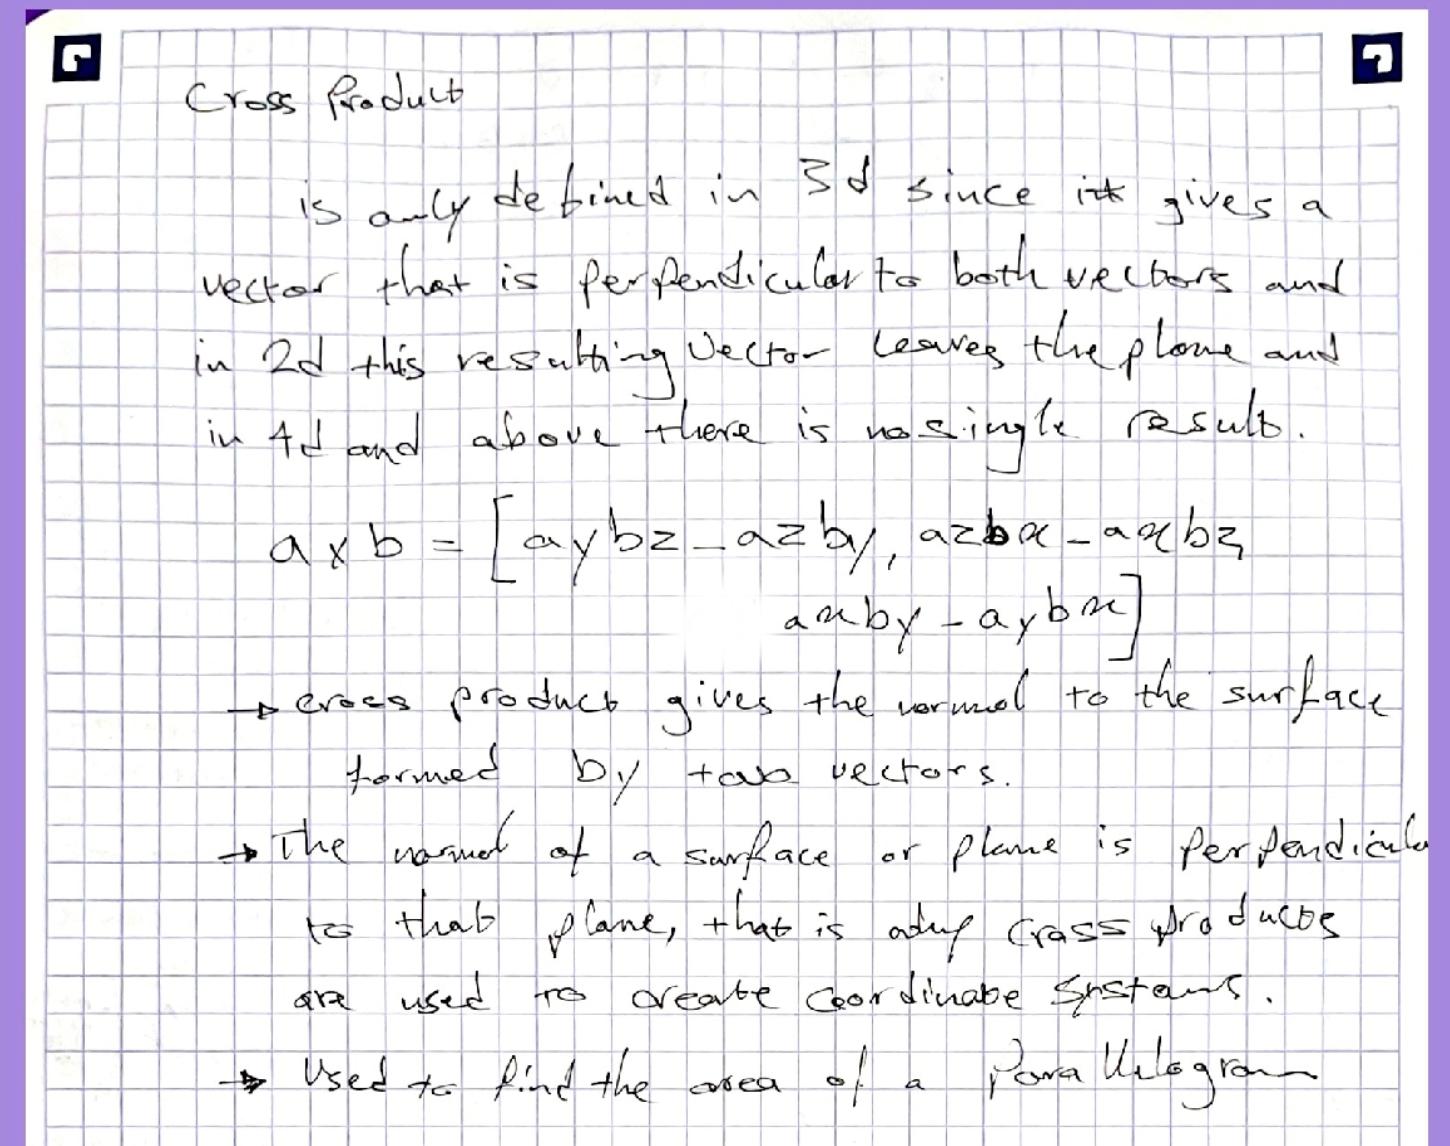 Cross Product
is only defined in 3d since it gives a
vector that is perpendicular to both vectors and
in 2d this resulting vector leaves the plane and
in 4d and above there is no single result.
a x b = [aybz - azby, azbx - axbz,
axby - aybx]
→ cross product gives the normal to the surface
formed by two vectors.
→ The normal of a surface or plane is perpendicula
to that plane, that is why cross products
are used to create coordinate systems.
→ Used to find the area of a parallelogram